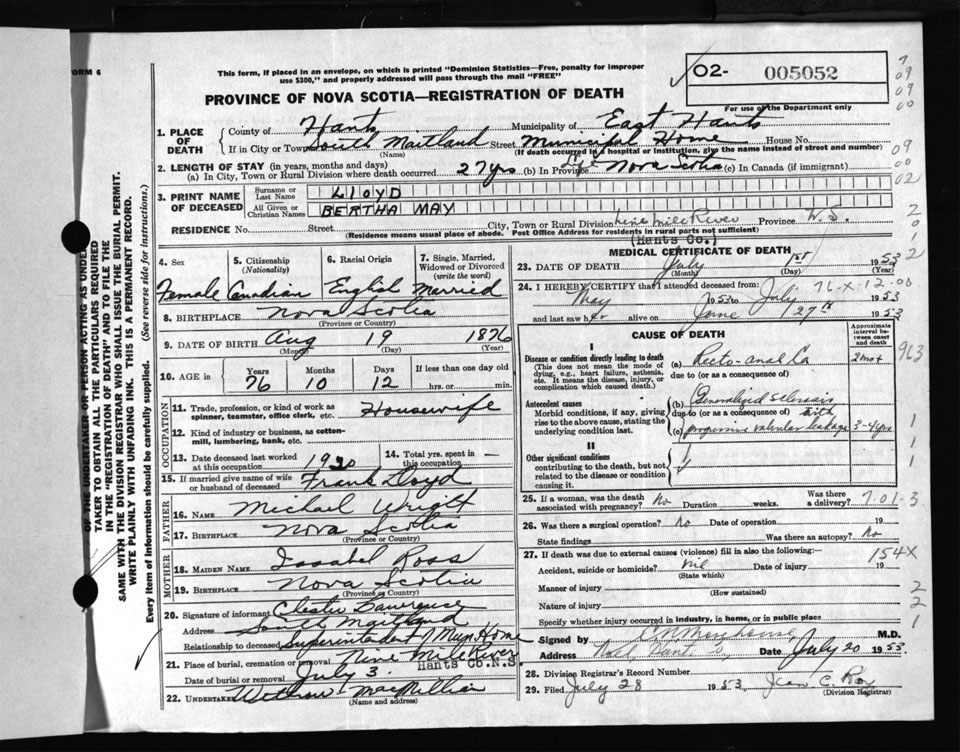 FORM 6
This form, if placed in an envelope, on which is printed "Dominion Statistics—Free, penalty for improper
use $300," and properly addressed will pass through the mail "FREE"
PROVINCE OF NOVA SCOTIA—REGISTRATION OF DEATH
02- 005052
For use of the Department only
1. PLACE OF DEATH { County of Hants Municipality of East Hants
If in City or Town South Maitland Street Municipal Home House No.
(Name) (If death occurred in a hospital or institution, give the name instead of street and number)
2. LENGTH OF STAY (in years, months and days)
(a) In City, Town or Rural Division where death occurred 27 yrs (b) In Province Life Nova Scotia (c) In Canada (if immigrant)
3. PRINT NAME OF DECEASED { Surname or Last Name LLOYD
All Given or Christian Names BERTHA MAY
RESIDENCE No. Street City, Town or Rural Division Nine Mile River Province N.S.
(Residence means usual place of abode. Post Office Address for residents in rural parts not sufficient)
(Hants Co.)
4. Sex Female
5. Citizenship (Nationality) Canadian
6. Racial Origin English
7. Single, Married, Widowed or Divorced (write the word) Married
8. BIRTHPLACE Nova Scotia
(Province or Country)
9. DATE OF BIRTH Aug 19 1876
(Month) (Day) (Year)
10. AGE in { Years 76 Months 10 Days 12 If less than one day old hrs. or min.
OCCUPATION
11. Trade, profession, or kind of work as spinner, teamster, office clerk, etc. Housewife
12. Kind of industry or business, as cotton-mill, lumbering, bank, etc.
13. Date deceased last worked at this occupation 1920 14. Total yrs. spent in this occupation —
15. If married give name of wife or husband of deceased Frank Lloyd
FATHER
16. NAME Michael Wright
17. BIRTHPLACE Nova Scotia
(Province or Country)
MOTHER
18. MAIDEN NAME Issabel Ross
19. BIRTHPLACE Nova Scotia
(Province or Country)
20. Signature of informant Chester
Address South Maitland
Relationship to deceased Superintendent Mun Home
21. Place of burial, cremation or removal Nine Mile River
Hants Co. N.S.
Date of burial or removal July 3
22. UNDERTAKER Withrow MacMillan
(Name and address)
MEDICAL CERTIFICATE OF DEATH
23. DATE OF DEATH July 1st 1953
(Month) (Day) (Year)
24. I HEREBY CERTIFY that I attended deceased from: 76-X-12-00
May 1953 to July 1953
and last saw her alive on June 27th 1953
CAUSE OF DEATH
Approximate interval between onset and death
I
Disease or condition directly leading to death
(This does not mean the mode of dying, e.g., heart failure, asthenia, etc. It means the disease, injury, or complication which caused death.)
(a) Recto-anal Ca 2 mos
due to (or as a consequence of)
Antecedent causes
Morbid conditions, if any, giving rise to the above cause, stating the underlying condition last.
(b) Generalized sclerosis
due to (or as a consequence of) with
(c) progressive valvular leakage 3-4 yrs
II
Other significant conditions
contributing to the death, but not related to the disease or condition causing it.
25. If a woman, was the death associated with pregnancy? No Duration weeks. Was there a delivery? 7-01-3
26. Was there a surgical operation? No Date of operation 19
State findings Was there an autopsy? No
27. If death was due to external causes (violence) fill in also the following:— 154X
Accident, suicide or homicide? nil Date of injury 19
(State which)
Manner of injury
(How sustained)
Nature of injury
Specify whether injury occurred in industry, in home, or in public place
Signed by M.D.
Address Noel, Hants Co. Date July 20 1955
28. Division Registrar's Record Number
29. Filed July 28 1953 Jean C. Roy
(Division Registrar)
7
09
09
00
09
00
02
2
0
1
2
963
1
1
1
2
2
1
OF THE UNDERTAKER OR PERSON ACTING AS UNDER
TAKER TO OBTAIN ALL THE PARTICULARS REQUIRED
IN THE "REGISTRATION OF DEATH" AND TO FILE THE
SAME WITH THE DIVISION REGISTRAR WHO SHALL ISSUE THE BURIAL PERMIT.
WRITE PLAINLY WITH UNFADING INK. THIS IS A PERMANENT RECORD.
Every item of information should be carefully supplied. (See reverse side for instructions.)